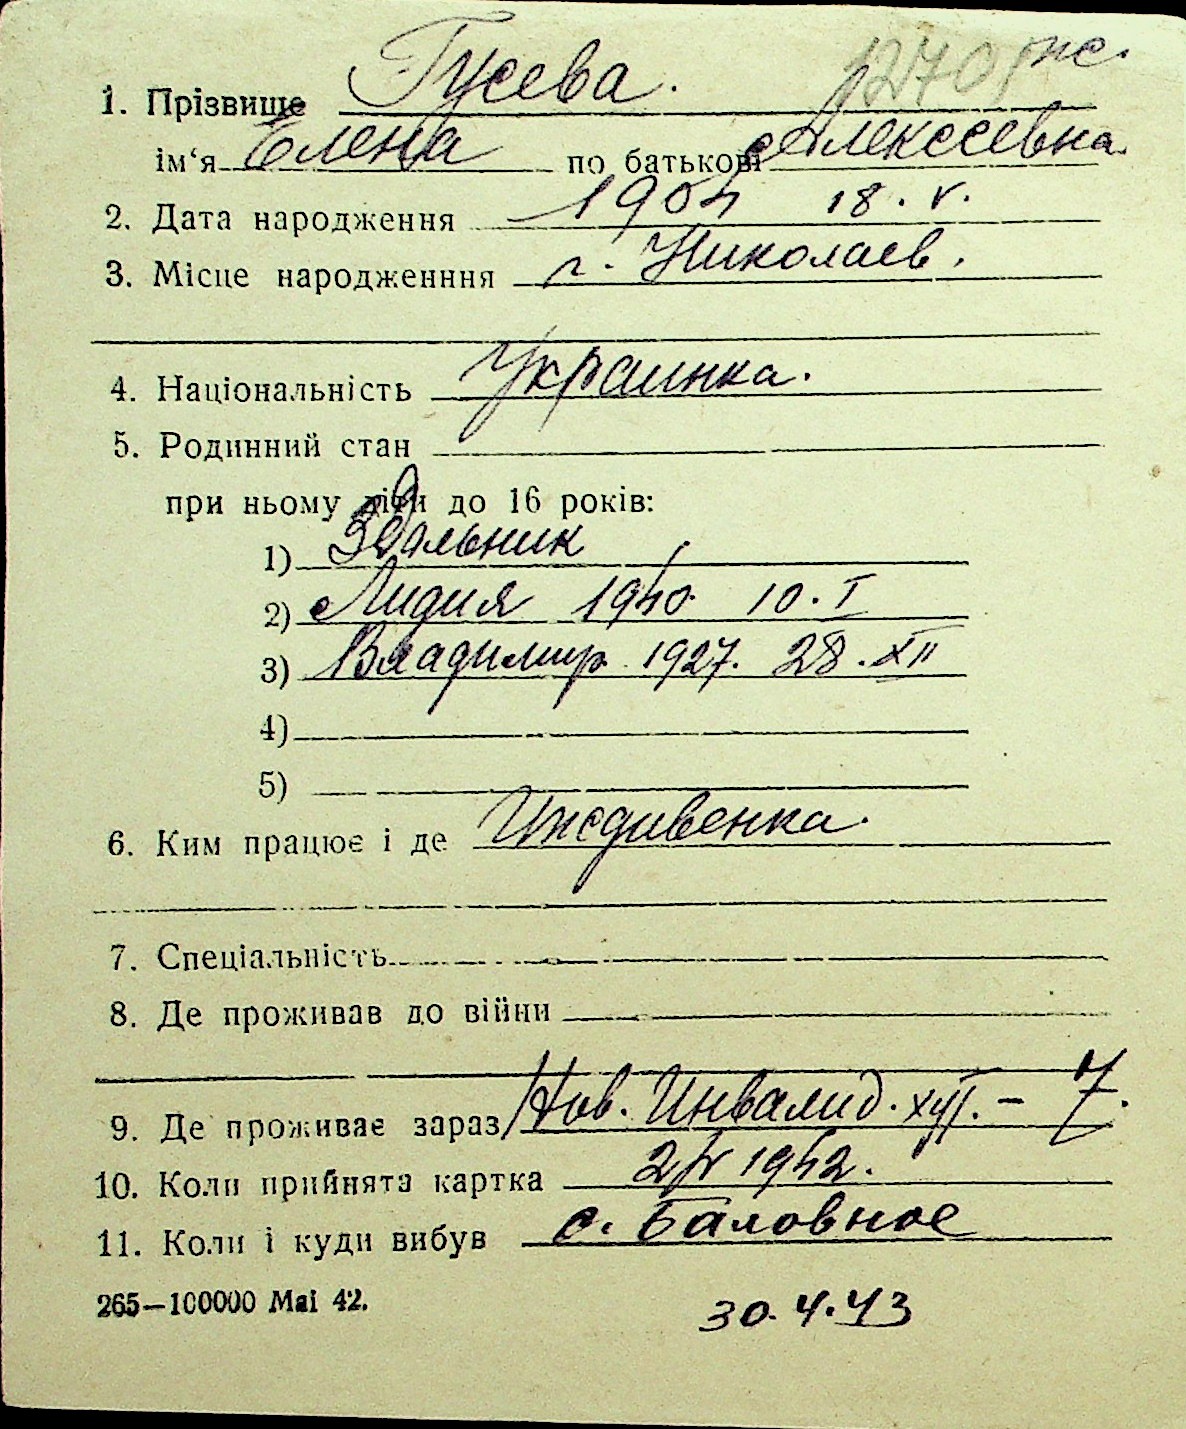 12701 жс.
1. Прізвище Гусева.
ім‘я Елена по батькові Алексеевна.
2. Дата народження 1904 18. V.
3. Місце народженння г. Николаев.
4. Національність Украинка.
5. Родинний стан
при ньому діти до 16 років:
1)
2) Лидия 1940 10. I
3) Владимир 1927. 28. XII
4)
5)
6. Ким працює і де Иждивенка.
7. Спеціальність
8. Де проживав до війни
9. Де проживає зараз Нов. Инвалид. хут. – 7.
10. Коли прийнята картка 1942.
11. Коли і куди вибув с. Баловное
265—100000 Mai 42.
30. 4. 43